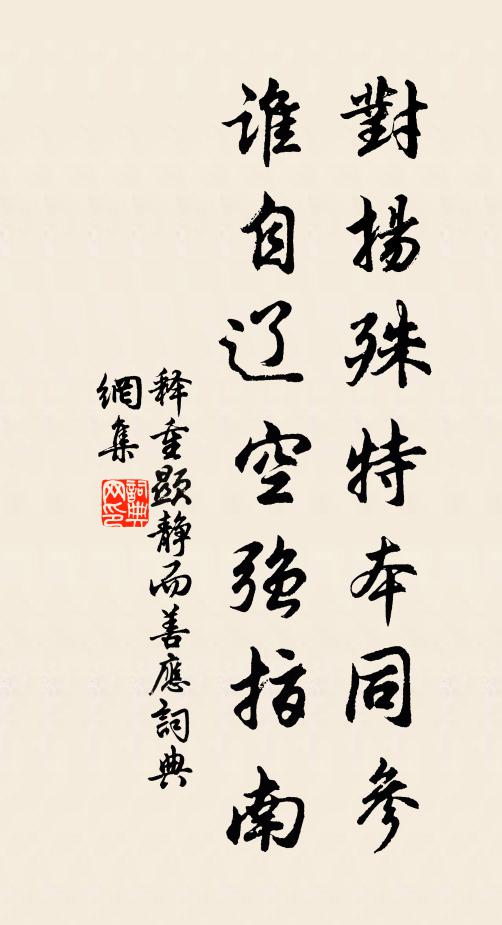 對揚殊特本同參
誰自辽空强指南
释重顯静而善應詞典
網集
詞典
网印